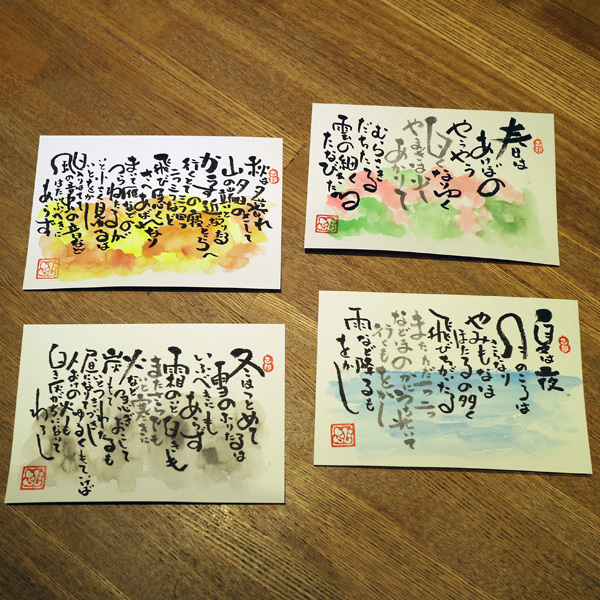 春は
あけぼの
やうやう
白くなりゆく
やまぎは少し
あかりて
むらさき
だちたる
雲の細く
たなびきたる
夏は夜
月のころは
さらなり
やみもなほ
ほたるの多く
飛びちがひたる
またただ一つ二つ
などほのかにうち光いて
行くもをかし
雨など降るも
をかし
秋は夕暮れ
夕日のさして
山の端いと近うなりたるに
からすの寝どころへ
行くとて
三つ四つ
二つ三つなど
飛び急ぐ
さへあはれなり
まいて雁などの
つらねたるが
いと小さく見ゆるは
いとをかし
日入りはてて
風の音虫の音など
はたいふべきに
あらず
冬はつとめて
雪のふりたるは
いふべきにも
あらず
霜のいと白きも
またさらでも
いと寒きに
火など
急ぎおこして
炭もてわたるも
いとつきづきし
昼になりて
ぬるくゆるびもていけば
火おけの火も
白き灰がちになりて
わろし